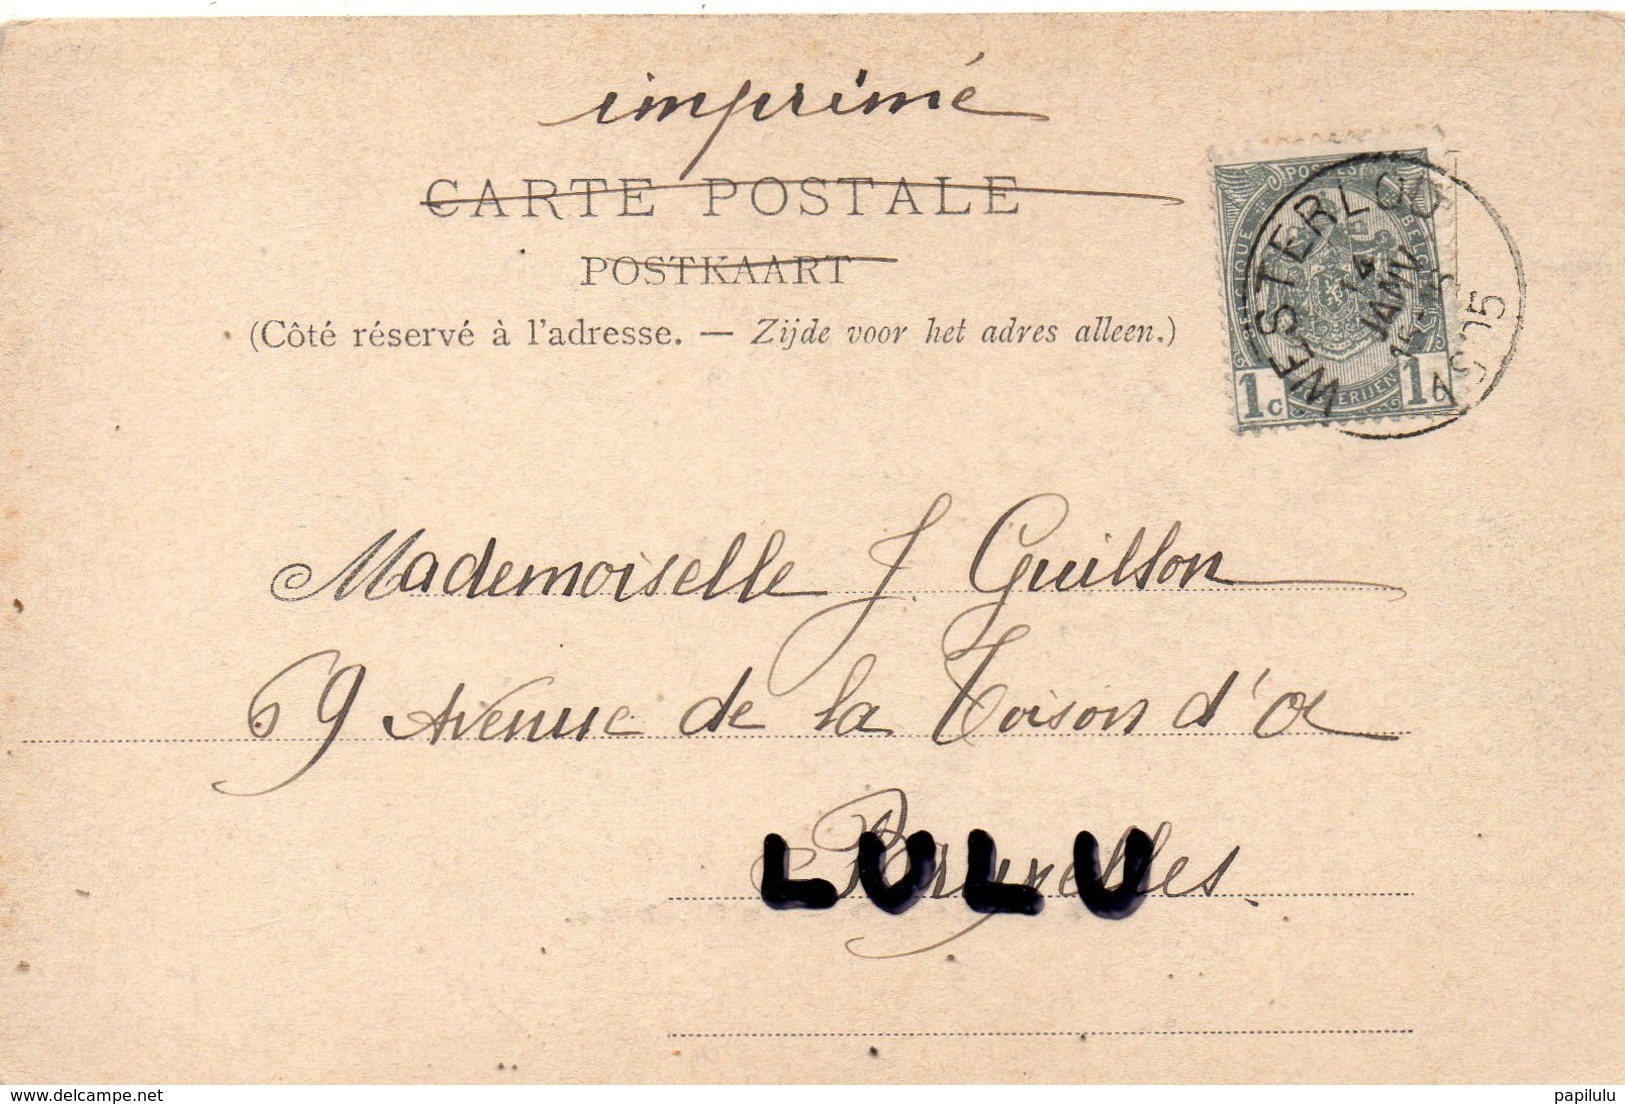 imprimé
CARTE POSTALE
POSTKAART
(Côté réservé à l'adresse. — Zijde voor het adres alleen.)
POSTES
BELGIE
1c 1c
WESTERLOO
14
JANV
15-
Mademoiselle J. Guillon
69 Avenue de la Toison d'or
Bruxelles
LULU
delcampe.net
papilulu